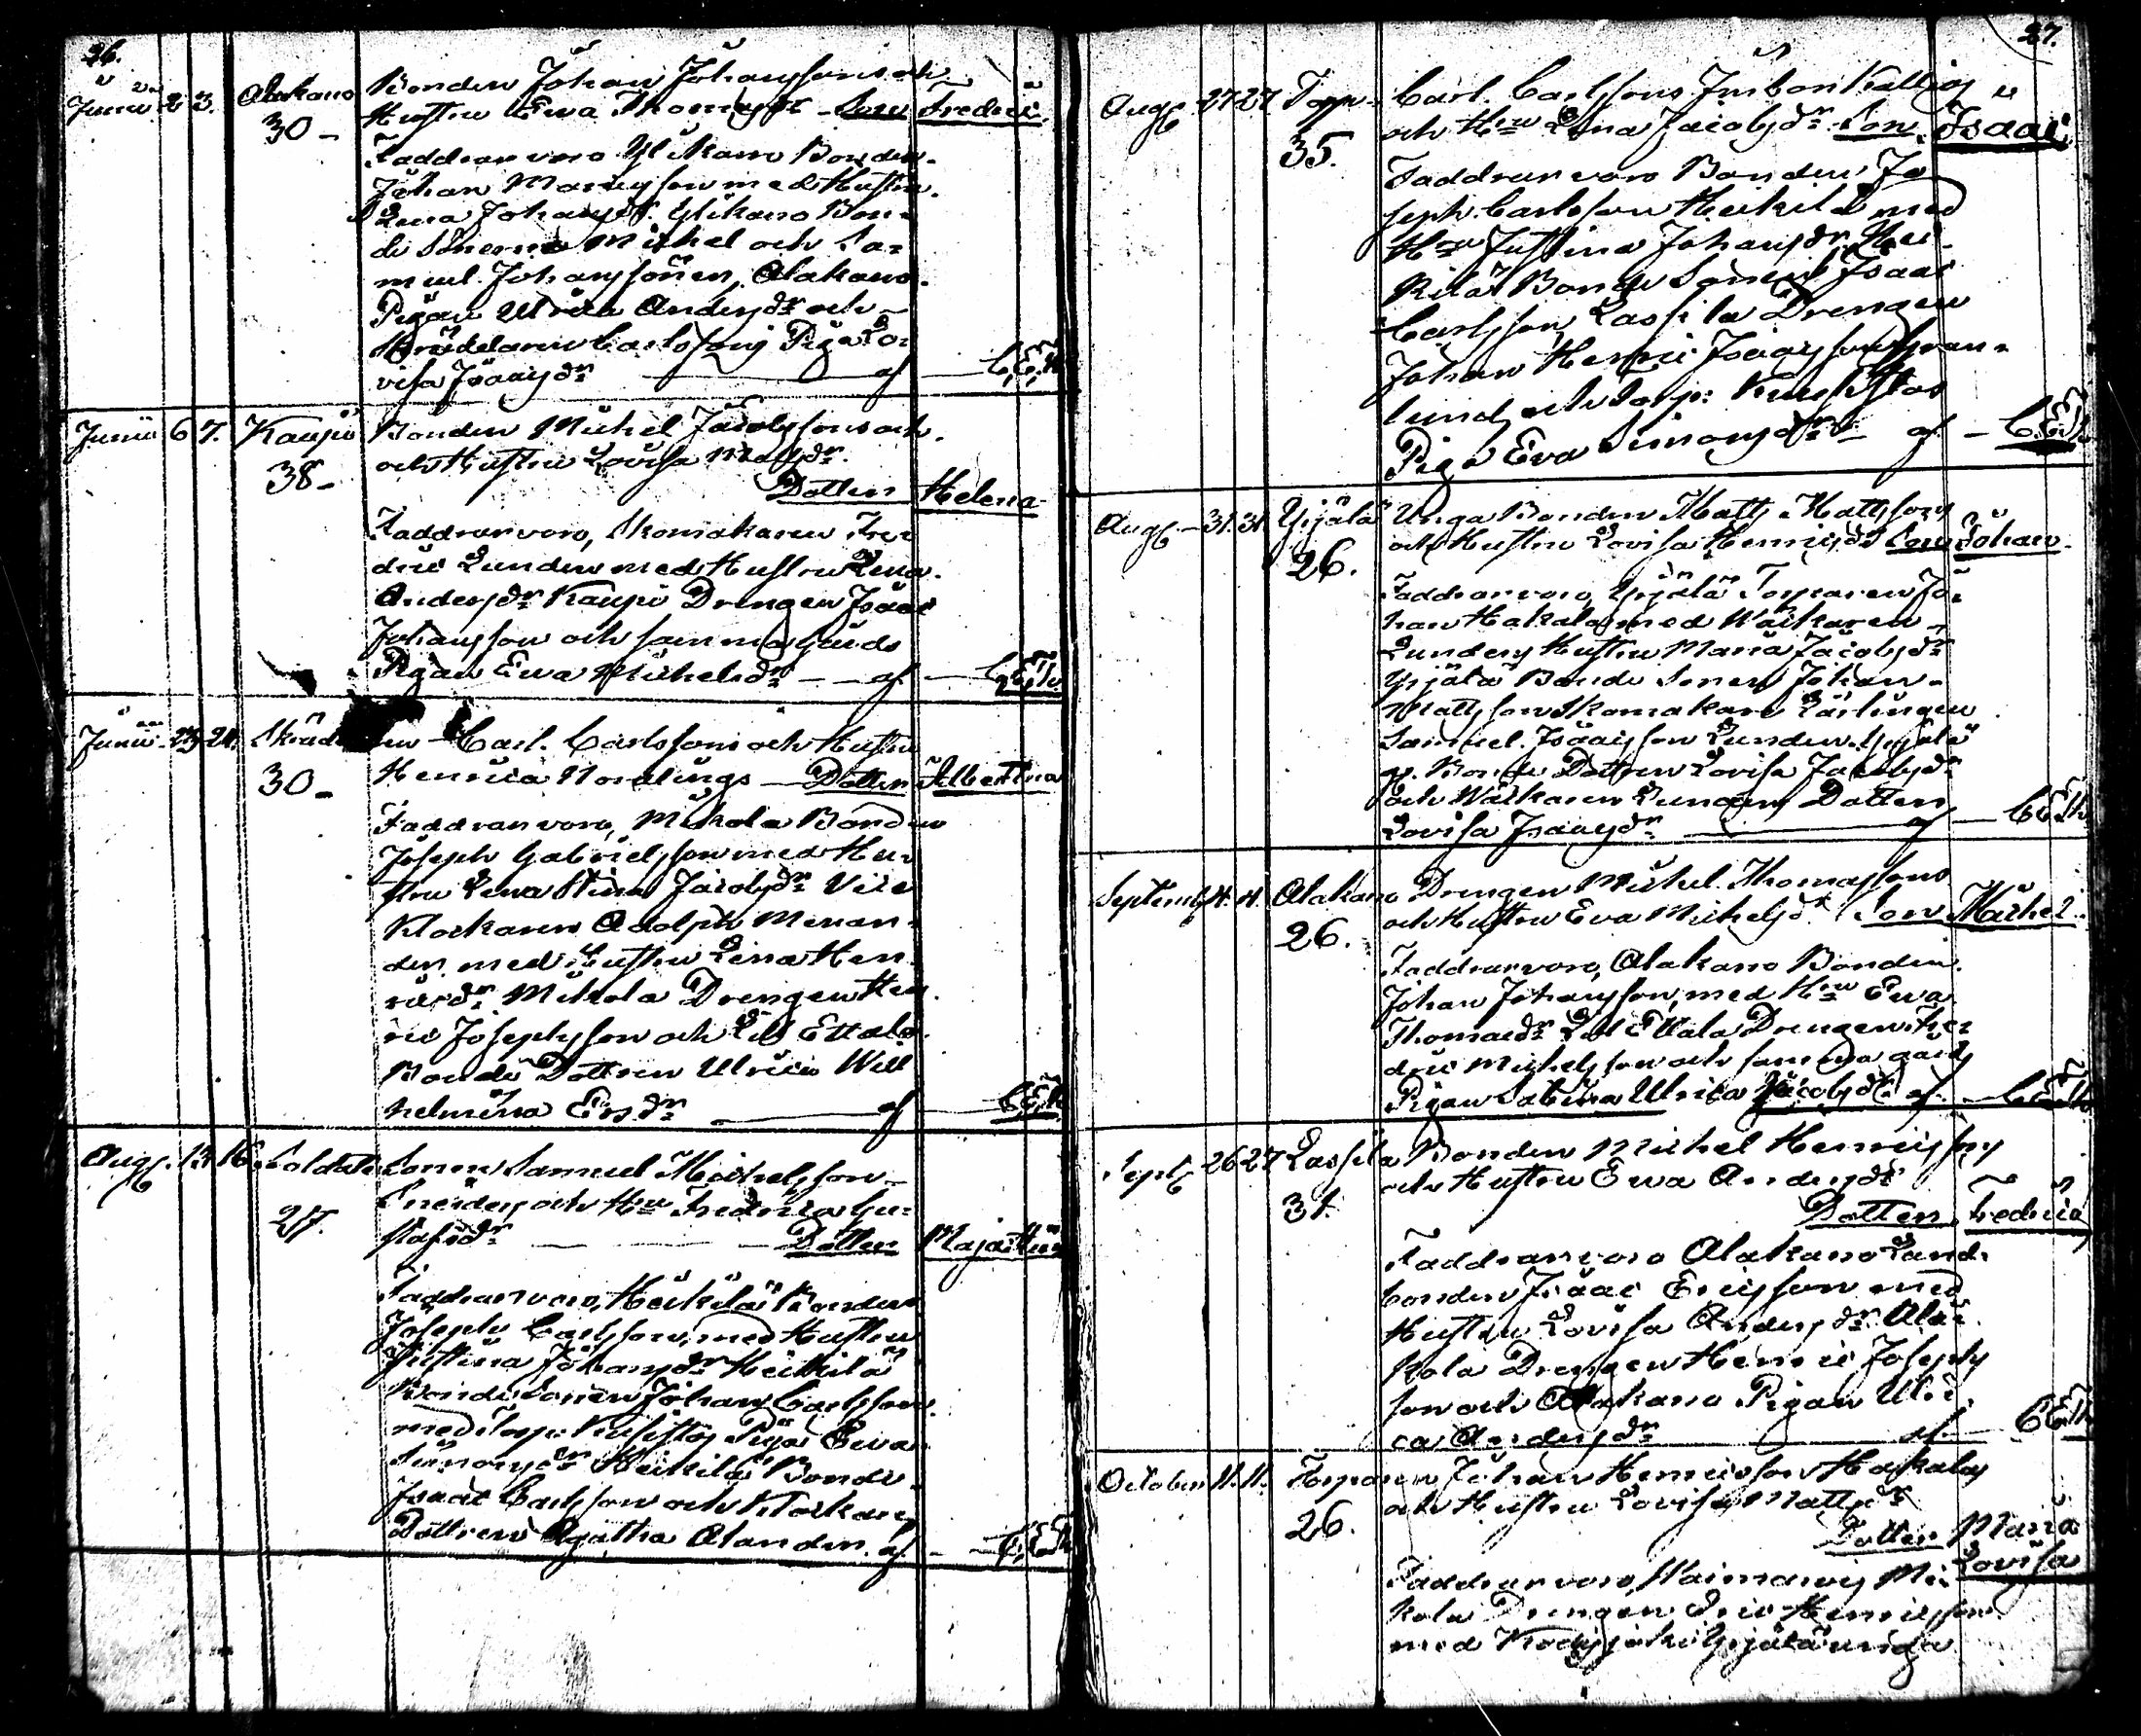 26.
Junii 2 3. Alakano Bonden Johan Johanssons och
30 - Hustru Ewa Thomasdr - Son Fredric
Faddrar voro Ylikano Bonden
Johan Mariasson med Hustru
Lena Johansdr. Ylikano Bon-
de Sönerne Michel och Sa-
muel Johanssöner, Alakano
Pigan Ulrica Andersdr och
Skräddaren Carlssons Piga Lo-
visa Isaacsdr af C.E.Th.
Junii 6 7. Kaupi Bonden Michel Jacobssons och
38 - och Hustru Lovisa Matsdr.
Dotter Helena
Faddrar voro, Skomakaren Fre-
dric Lunden med Hustru Lena
Andersdr Kaupi Drengen Isaac
Johansson och samma Gårds
Pigan Ewa Michelsdr - - af C.E.Th.
Junii 23 24. Skräddaren Carl Carlssons och Hustru
30 - Henrica Nordlings - Dotter Albertina
Faddrar voro, Mickola Bonden
Joseph Gabrielsson med Hu-
stru Lena Stina Jacobsdr Vice
Klockaren Adolph Menan-
der med Hustru Lena Hen-
ricsdr. Mickola Drengen Hen-
ric Josephsson och Lill Ettala
Bonde Dottren Ulrica Wil-
helmina Ersdr af C.E.Th.
Aug. 13 16. Soldate Sonen Samuel Michelsson
27. Sneiders och Hru Fredrica Gu-
stafsdr - Dotter Maja Stina
Faddrar voro, Heikilä Bonden
Joseph Carlsson, med Hustru
Justina Johansdr Heikilä
Bonde Sonen Johan Carlsson
med Torp. Piga Ewa
Simonsdr Heikilä Bonde
Isaac Carlsson och Klockare
Dottren Agatha Alander. af C.E.Th.
27.
Aug. 27 27 Torp. Carl Carlssons Kallios
35. och Hru Lena Jacobsdr Son Isaac
Faddrar voro Bonden Jo-
seph Carlsson Heikilä med
Hru Justina Johansdr, Hei-
kilä Bonde Sonen Isaac
Carlsson, Lassila Drengen
Johan Henric Isaacsson Gran-
lund och Torp.
Piga Eva Simonsdr - af - C.E.Th.
Aug. - 31. 31. Yrjälä Unga Bonden Matts Mattssons
26. och Hustru Lovisa Henricsdr Son Johan
Faddrar voro, Yrjälä Torparen Jo-
han Hakala, med
Lundens Hustru Maria Jacobsdr
Yrjälä Bonde Sonen Johan
Mattsson Skomakare Lärlingen
Samuel Isaacsson Lunden. Yrjälä
g. Bonde Dottren Lovisa Jacobsdr
och Dotter
Lovisa Isaacsdr af C.E.Th.
Septemb. 4. 4. Alakano Drengen Michel Thomassons
26. och Hustru Eva Michelsdr Son Michel
Faddrar voro, Alakano Bonden
Johan Johansson, med Hru Ewa
Thomasdr Lill Ettala Drengen Fre-
dric Michelsson och samma gårds
Pigan Sabina Ulrica Jacobsdr af - C.E.Th.
Sept. 26 27 Lassila Bonden Michel Henricssons
31. och Hustru Ewa Andersdr
Dotter Fredrica
Faddrar voro Alakano Land-
bonden Isaac Ericsson med
Hustru Lovisa Andersdr.
kola Drengen Henric Josephs-
son och Alakano Pigan Ulri-
ca Andersdr af - C.E.Th.
October 11. 11. Torparen Johan Henricsson Hakalas
26. och Hustru Lovisa Mattsdr
Dotter Maria
Lovisa
Faddrar voro, Mic-
kola Drengen Eric Henricsson
med Yrjälä unga